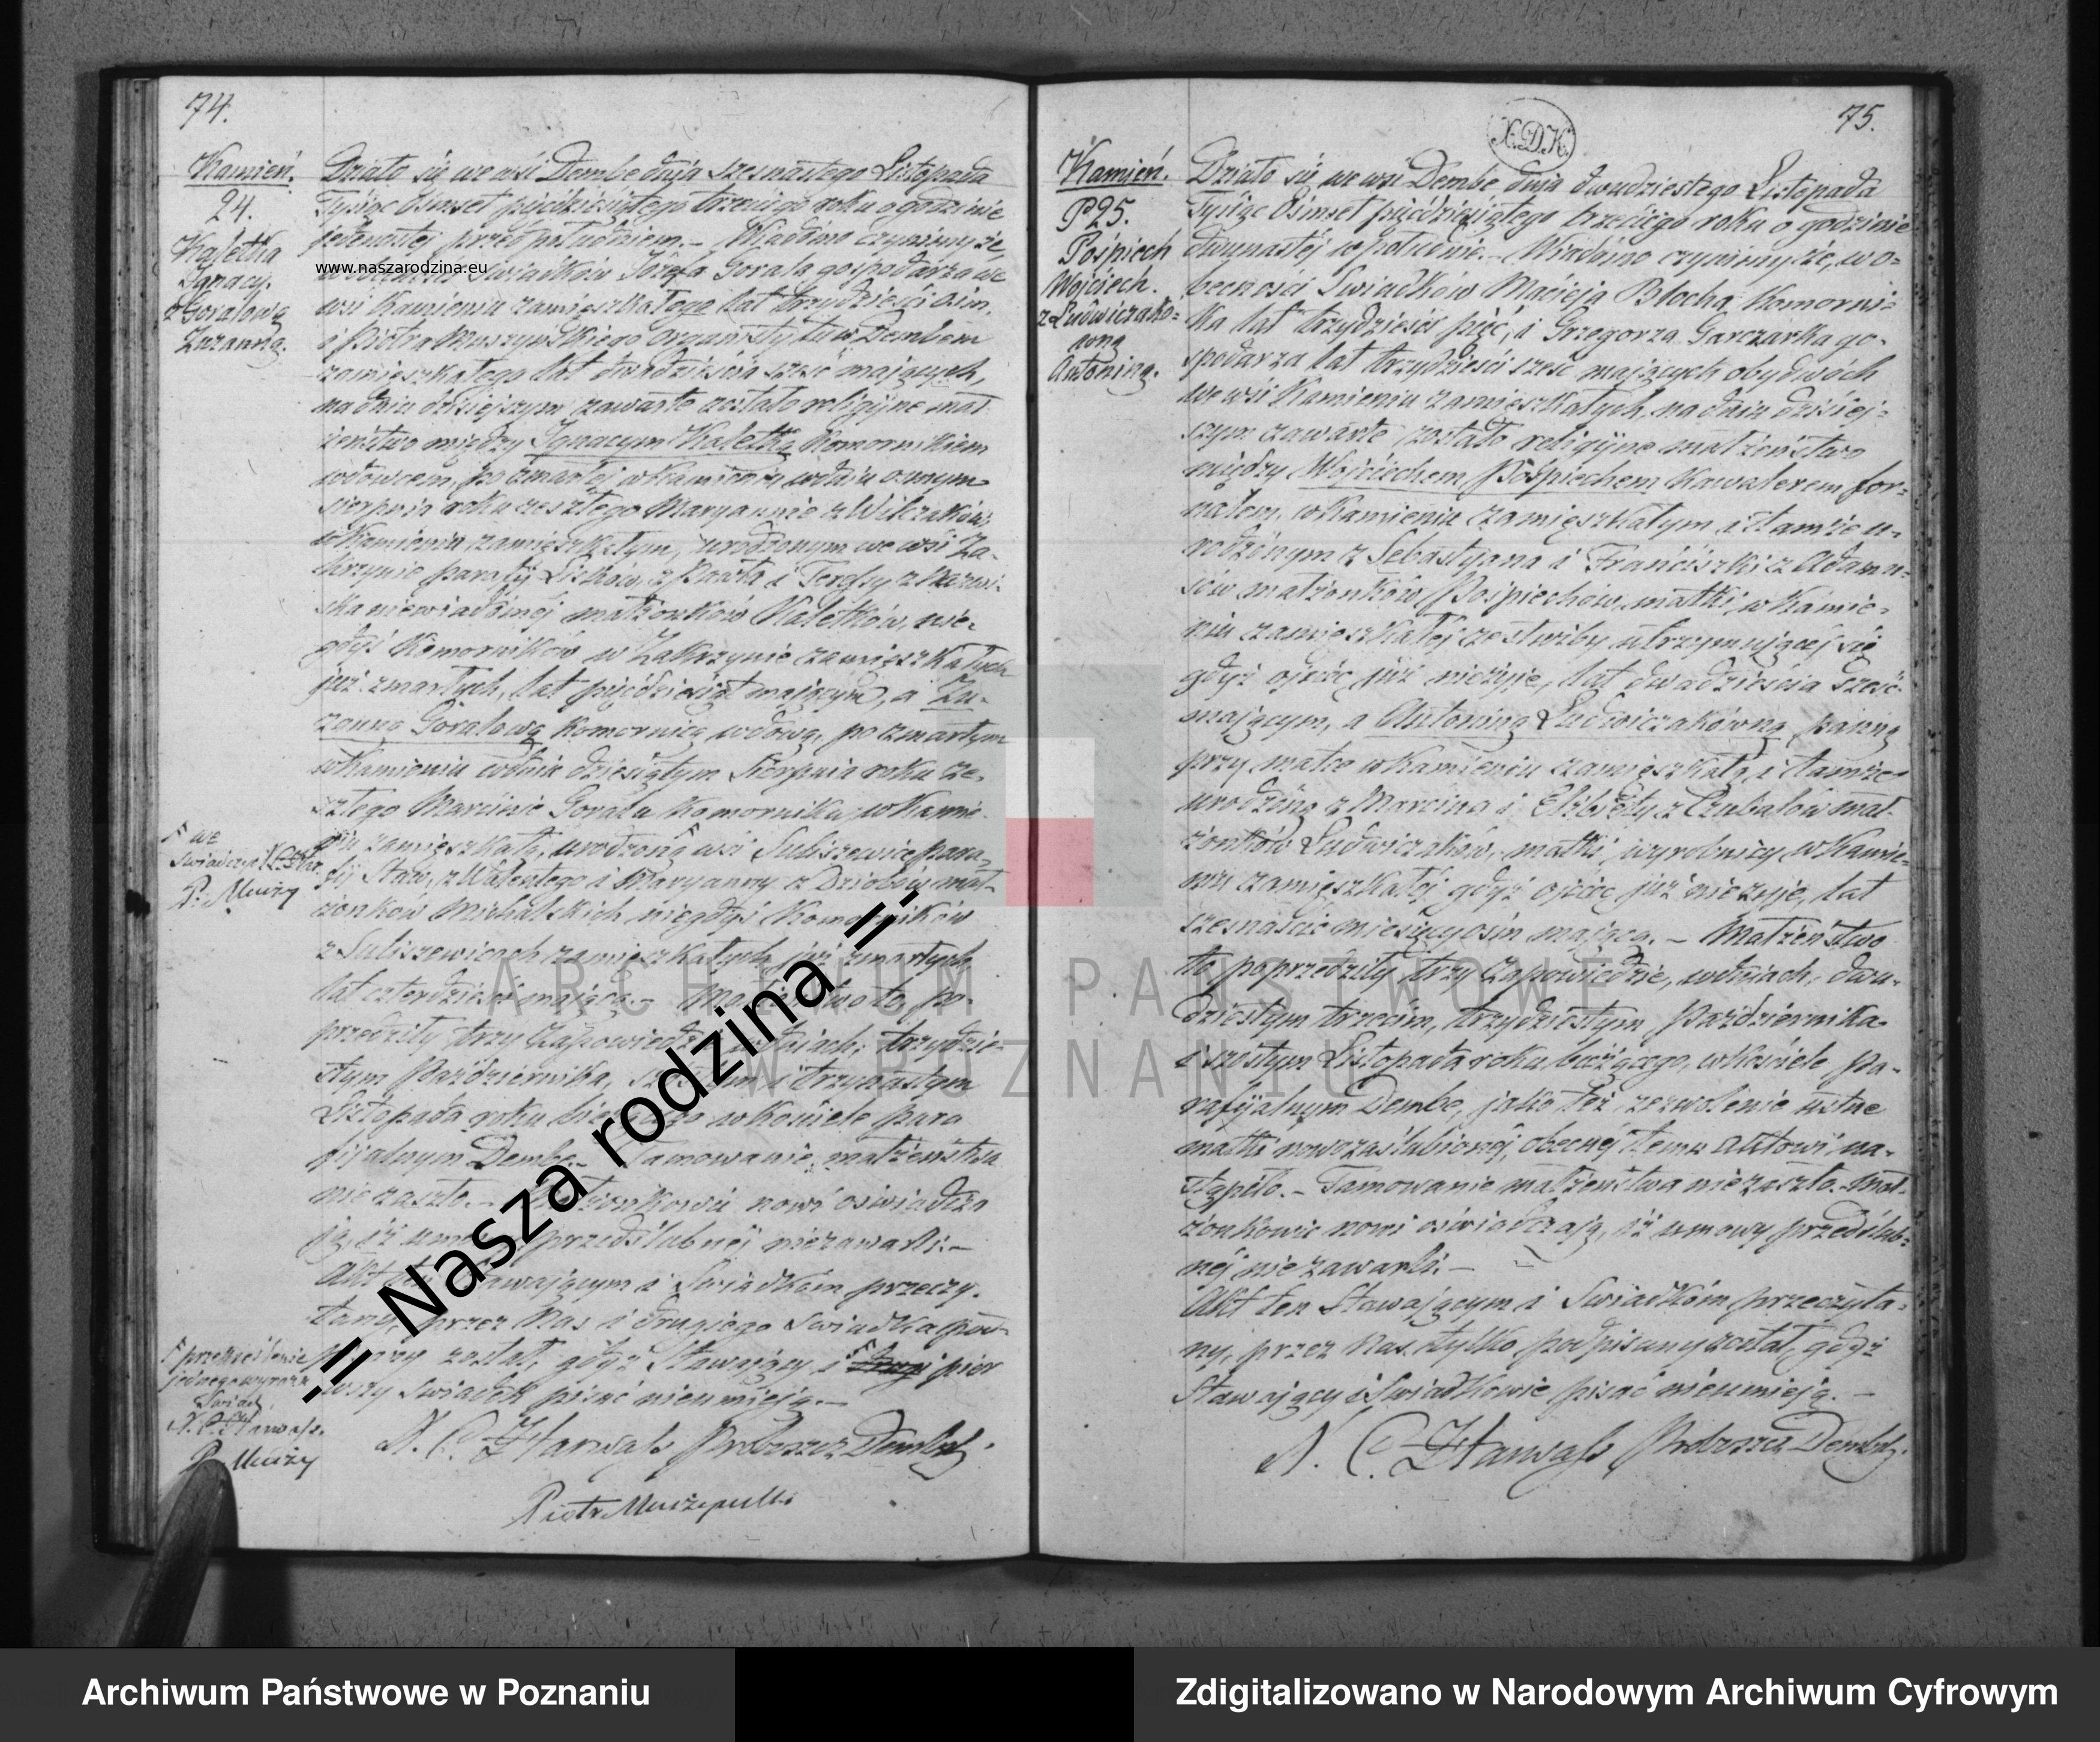 74.
Kamień.
24.
Kaletka
Ignacy.
z Goralową
Zuzanną.
Działo się we wsi Dembe dnia szesnastego Listopada
Tysiąc Ośmset pięćdziesiątego trzeciego roku o godzinie
jedenastej przed południem. – Wiadomo czynimy że,
www.naszarodzina.eu
w obecności Świadków Józefa Gorala gospodarza we
wsi Kamieniu zamieszkałego lat trzydzieści
i Piotra Muszyńskiego Organisty tu w Dembem
zamieszkałego lat dwadzieścia sześć mających,
na dniu dzisiejszym zawarte zostało religijne mał
żeństwo między Ignacym Kaletką Komornikiem
wdowcem, po zmarłej w Kamieniu w dniu osmym
sierpnia roku zeszłego Maryannie z Wilczaków
w Kamieniu zamieszkałym, urodzonym we wsi Za-
krzynie parafij Lisków z Pawła i Teresy z nazwi-
ska niewiadomej małżonków Kaletków, nie-
gdyś Komorników w Zakrzynie zamieszkałych
już zmarłych, lat pięćdziesiąt mającym, a Zu-
zanną Goralową Komornicą wdową, po zmarłym
w Kamieniu w dniu dziesiątym Sierpnia roku ze-
szłego Marcinie Goralu Komorniku, w Kamie-
niu zamieszkałą, urodzoną wsi Suliszewice para-
fij Staw, z Walentego i Maryanny z Dziobów mał-
żonków Michalskich, niegdyś Komorników
z Suliszewicach zamieszkałych już zmarłych
lat czterdzieści mającą. – Małżeństwo to, po-
przedziły trzy Zapowiedzie w dniach; trzydzie-
stym Października, szóstym i trzynastym
Listopada roku bieżącego w Kościele para
fijalnym Dembe. – Tamowanie małżeństwa
nie zaszło. – Małżonkowie nowi oświadcza
ją, iż umowy przedślubnej niezawarli. –
Akt ten Stawającym i Świadkom przeczy-
tany, przez Nas i drugiego Świadka pod-
pisany został, gdyż Stawający i pier
wszy Świadek pisać nieumieją. –
we
P. Muszy
przekreślenie
jednego wyrazu
Świad
P. Muszy
Proboszcz Dembski.
Piotr Muszyński
75.
X.D.K.
Kamień.
P 25.
Pośpiech
Wojciech.
z Ludwiczako-
wną
Antoniną.
Działo się we wsi Dembe dnia dwudziestego Listopada
Tysiąc Ośmset pięćdziesiątego trzeciego roku o godzinie
dwunastej w południe. – Wiadomo czynimy że, w o-
becności Świadków Macieja Błocha Komorni-
ka lat trzydzieści pięć, i Grzegorza Garczarka go-
spodarza lat trzydzieści sześć mających obydwóch
we wsi Kamieniu zamieszkałych, na dniu dzisiej-
szym zawarte zostało religijne małżeństwo
między Wojciechem Pośpiechem Kawalerem for-
nalem, w Kamieniu zamieszkałym i tamże u-
rodzonym z Sebastyana i Franciszki z Adamu-
sów małżonków Pośpiechów, matki w Kamie-
niu zamieszkałej ze służby utrzymującej się
gdyż ojciec już nieżyje, lat dwadzieścia sześć
mającym, a Antoniną Ludwiczakówną, panną
przy matce w Kamieniu zamieszkałą i tamże
urodzoną z Marcina i Elżbiety z Czubałów mał-
żonków Ludwiczaków, matki wyrobnicy w Kamie-
niu zamieszkałej gdyż ojciec już nieżyje, lat
szesnaście miesięcy osim mającą. – Małżeństwo
to poprzedziły trzy Zapowiedzie, w dniach, dwu-
dziestym trzecim, trzydziestym Października
i szóstym Listopada roku bieżącego, w Kościele pa-
rafijalnym Dembe, jako też zezwolenie ustne
matki nowozaślubionej, obecnej temu Aktowi na-
stąpiło. – Tamowanie małżeństwa nie zaszło. Mał-
żonkowie nowi oświadczają, iż umowy przedślub-
nej nie zawarli. –
Akt ten Stawającym i Świadkom przeczyta-
ny, przez Nas tylko podpisany został, gdyż
Stawający i Świadkowie pisać nieumieją. –
Proboszcz Dembski.
ARCHIWUM PAŃSTWOWE
W POZNANIU
.:= Nasza rodzina =:.
Archiwum Państwowe w Poznaniu
Zdigitalizowano w Narodowym Archiwum Cyfrowym